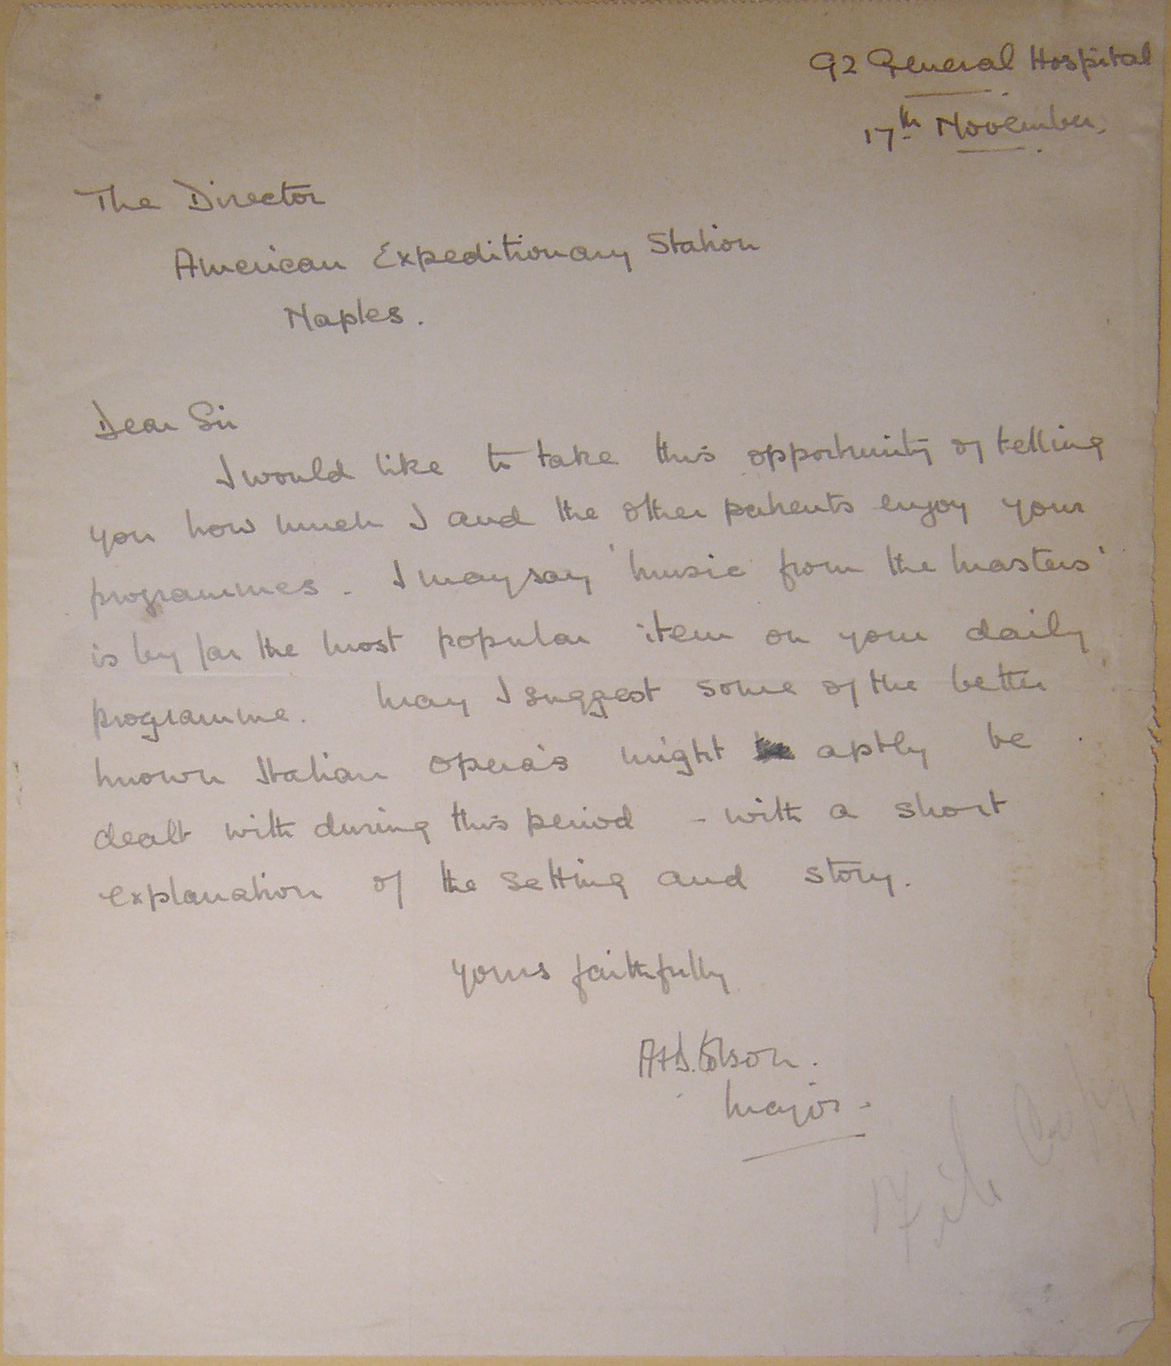 92 General Hospital
17th November.
The Director
American Expeditionary Station
Naples.
Dear Sir
I would like to take this opportunity of telling
you how much I and the other patients enjoy your
programmes. I may say 'music from the masters'
is by far the most popular item on your daily
programme. May I suggest some of the better
known Italian opera's might aptly be
dealt with during this period - with a short
explanation of the setting and story.
Yours faithfully
Major.
File Copy